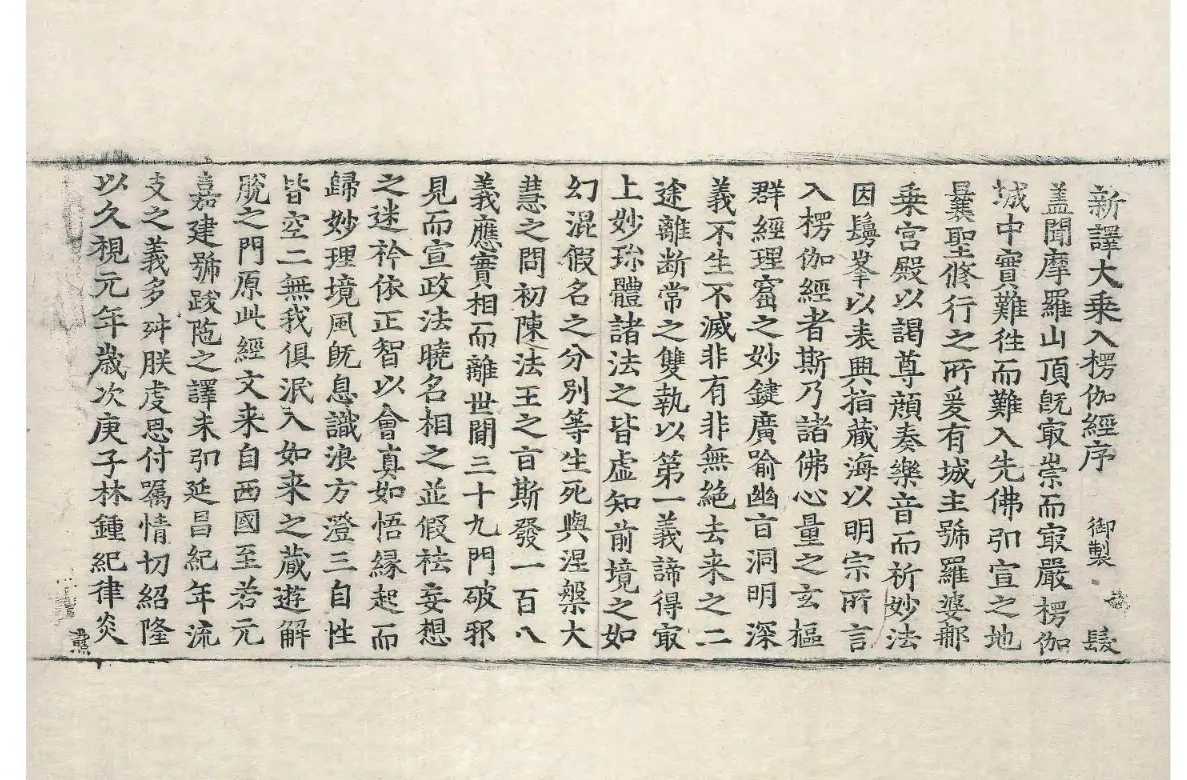 新譯大乗入楞伽經序 御製 髮
盖聞摩羅山頂旣㝡崇而㝡嚴楞伽
城中實難徃而難入先佛弘宣之地
曩聖修行之所爰有城主號羅婆那
乗宫殿以謁尊顔奏樂音而祈妙法
因鬘峯以表興指蔵海以明宗所言
入楞伽經者斯乃諸佛心量之玄樞
群經理窟之妙鍵廣喻幽旨洞明深
義不生不滅非有非無絶去来之二
途離断常之雙執以第一義諦得㝡
上妙珎體諸法之皆虚知前境之如
幻混假名之分別等生死與涅槃大
慧之問初陳法王之旨斯發一百八
義應實相而離世間三十九門破邪
見而宣政法曉名相之並假袪妄想
之迷衿依正智以會真如悟縁起而
歸妙理境風旣息識浪方澄三自性
皆空二無我俱泯入如来之蔵遊解
脫之門原此經文来自西國至若元
嘉建號跋陁之譯未弘延昌紀年流
支之義多舛朕虔思付囑情切紹隆
以久視元年歳次庚子林鍾紀律炎